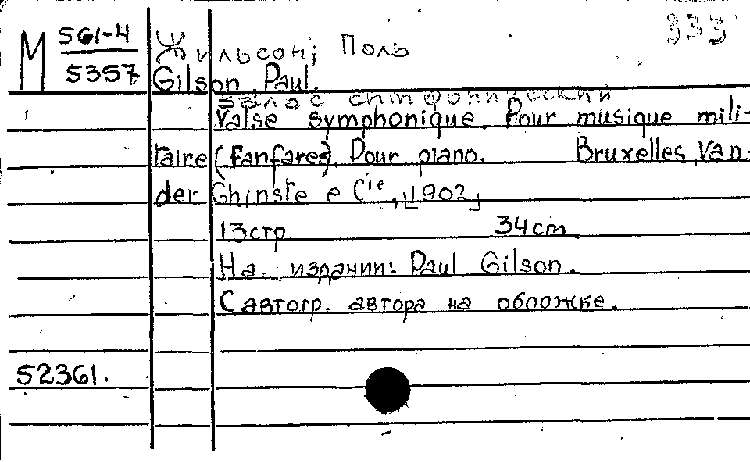 М 561-4 Жильсон, Поль 333
5357 Gilson, Paul.
Вальс симфонический
Valse symphonique. Pour musique mili-
taire (fanfares). Pour piano. Bruxelles, Van-
der Ghinste e Cie, [1902]
13 стр 34 cm
На издании: Paul Gilson.
С автогр. автора на обложке.
52361.